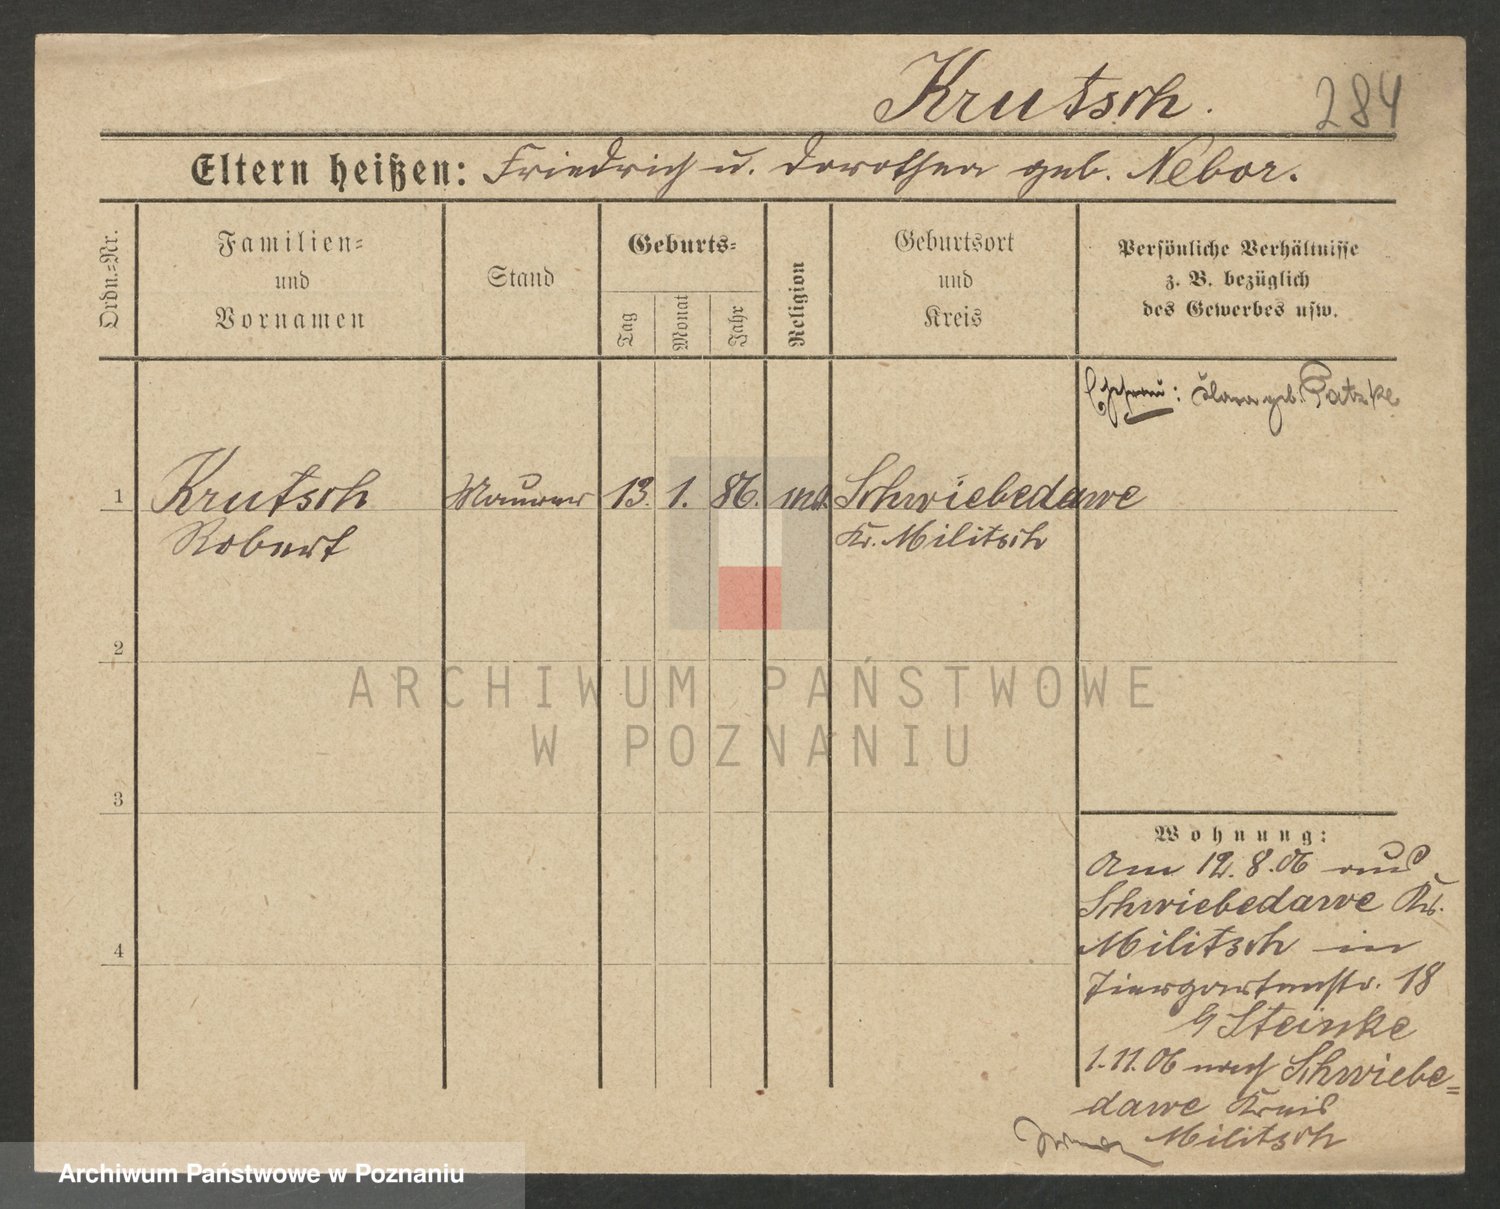 Krutsch.
284
Eltern heißen: Friedrich u. Dorothea geb. Nebor.
Ordn.=Nr.
Familien=
und
Vornamen
Stand
Geburts=
Tag
Monat
Jahr
Religion
Geburtsort
und
Kreis
Persönliche Verhältnisse
z. B. bezüglich
des Gewerbes usw.
Ehefrau: Klara geb. Patzke
1
Krutsch
Robert
Maurer
13.
1.
86.
Schwiebedawe
Kr. Militsch
2
3
4
Wohnung:
Am 12.8.06 aus
Schwiebedawe Kr.
Militsch in
Tiergartenstr. 18
b/ Steinke
1.11.06 nach Schwiebe=
dawe Kreis
Militsch
ARCHIWUM PAŃSTWOWE
W POZNANIU
Archiwum Państwowe w Poznaniu